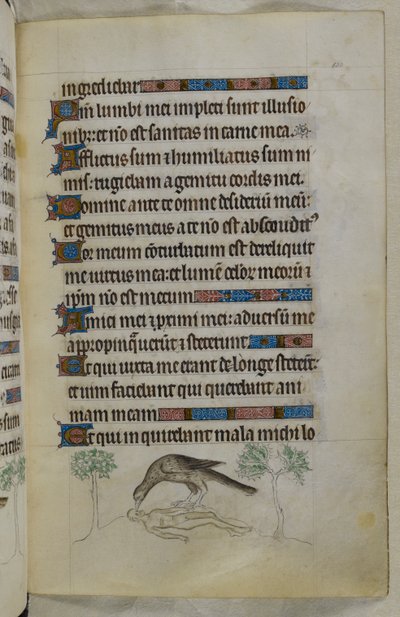 ingrediebar
Qm̄ lumbi mei impleti sunt illusio
nibꝫ: et nō est sanitas in carne mea.
Afflictus sum ⁊ humiliatus sum ni
mis: rugiebam a gemitu cordis mei.
Domine ante te omne desiderium meū:
et gemitus meus a te nō est absconditꝰ
Cor meum cōturbatum est dereliquit
me virtus mea: et lumē oculoꝝ meoꝝ ⁊
ip̄m nō est mecum
Amici mei ⁊ p̱ximi mei: aduersum me
appropinq̄uerūt ⁊ steterunt
Et qui iuxta me erant de longe steterūt:
et uim faciebant qui querebant ani
mam meam
Et qui inquirebant mala michi lo